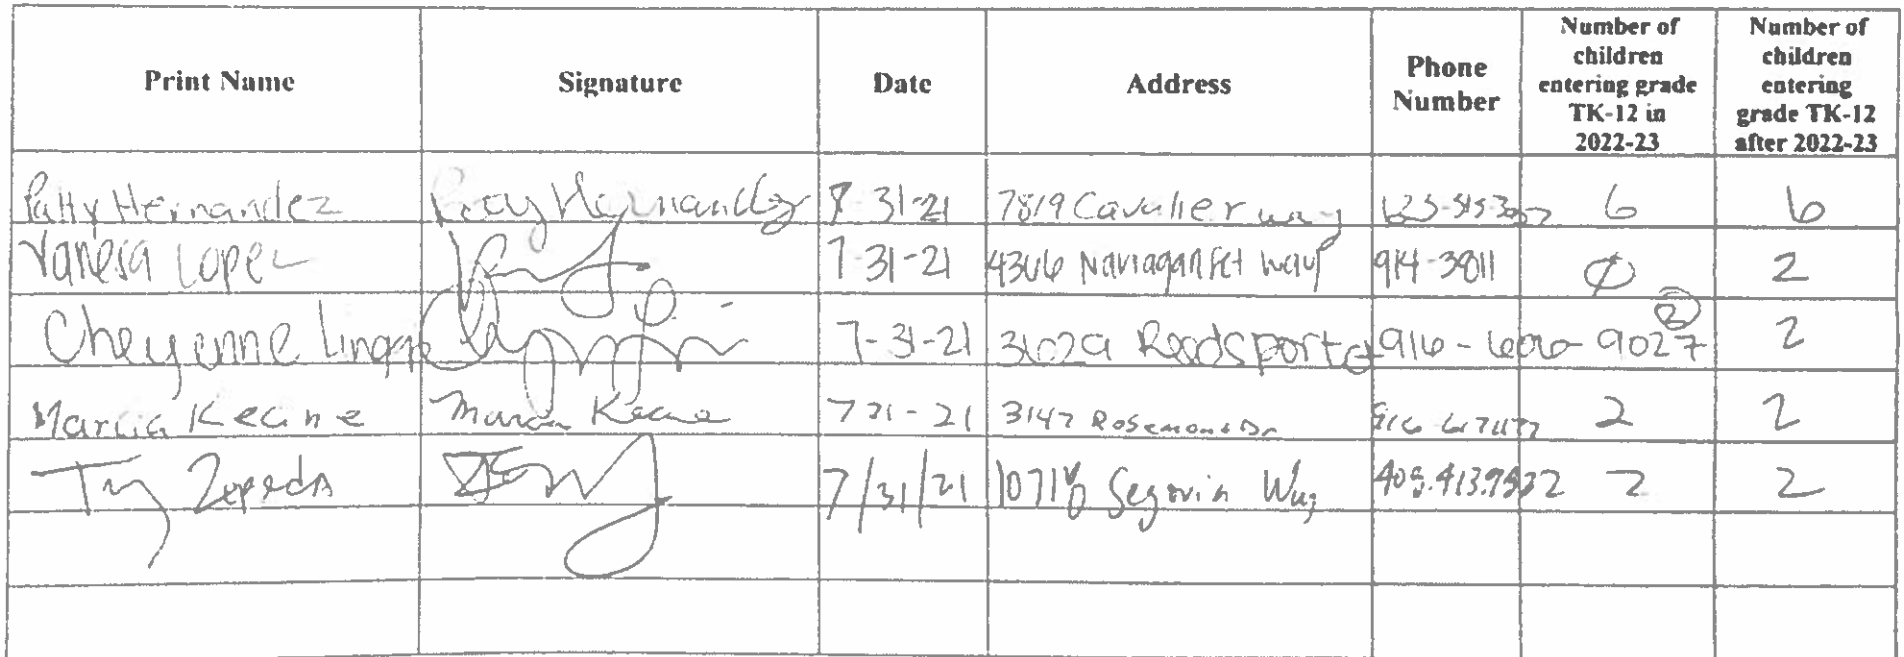 Print Name Signature Date Address Phone Number Number of children entering grade TK-12 in 2022-23 Number of children entering grade TK-12 after 2022-23
Patty Hernandez 31-21 7819 Cavalier way 6 6
Vanesa Lopez 7-31-21 Way 914-3911 Ø 2
Cheyenne 7-31-21 Reedsport 916-606-9027 2 2
Marcia Keane Marcia Keane 7 31-21 3147 Rosemont Dr 2 2
Zepeda 7/31/21 Segovia Way 2 2